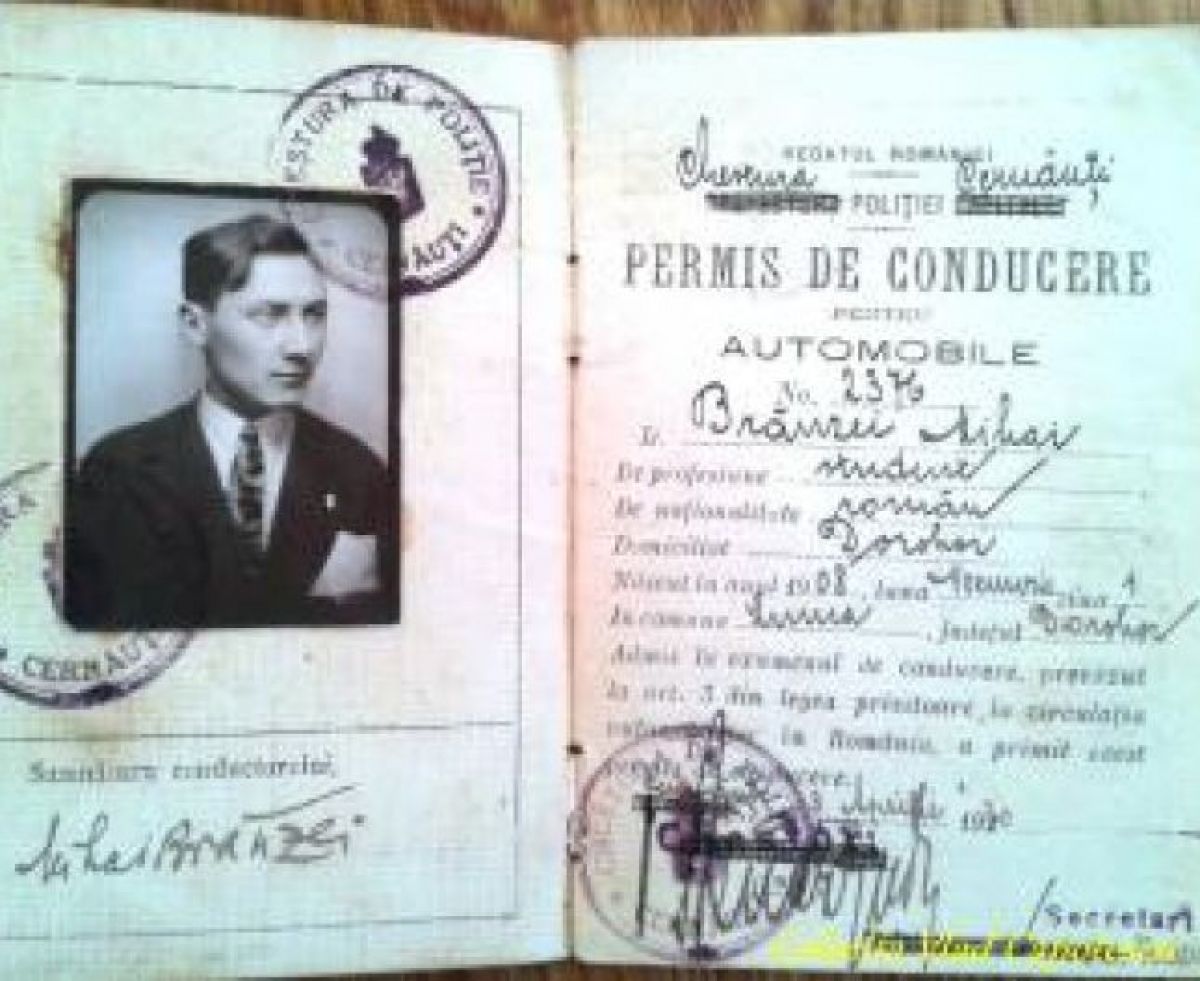 CHESTURA DE POLIȚIE
CERNĂUȚI
CERNĂUȚI
Semnătura conductorului,
Mihai Brânzei
REGATUL ROMÂNIEI
Chestura Cernăuți
POLIȚIEI
PERMIS DE CONDUCERE
PENTRU
AUTOMOBILE
No. 2376
D. Brânzei Mihai
De profesiune
De naționalitate român
Domiciliat Dorohoi
Născut în anul 1908, luna ziua 1
In comuna , județul Dorohoi
Admis la examenul de conducere, prevăzut
la art. 3 din legea privitoare la circulația
în România, a primit acest
permis de conducere.
Aprilie 1930
CHESTOR,
Secretar